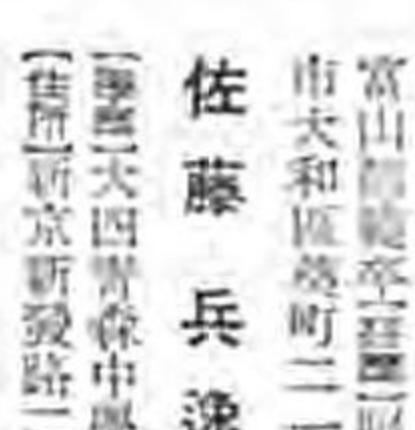 富山師範卒【
市大和區葵町二一
佐藤兵逸
【學歷】大四青森中學
【住所】新京新發路一